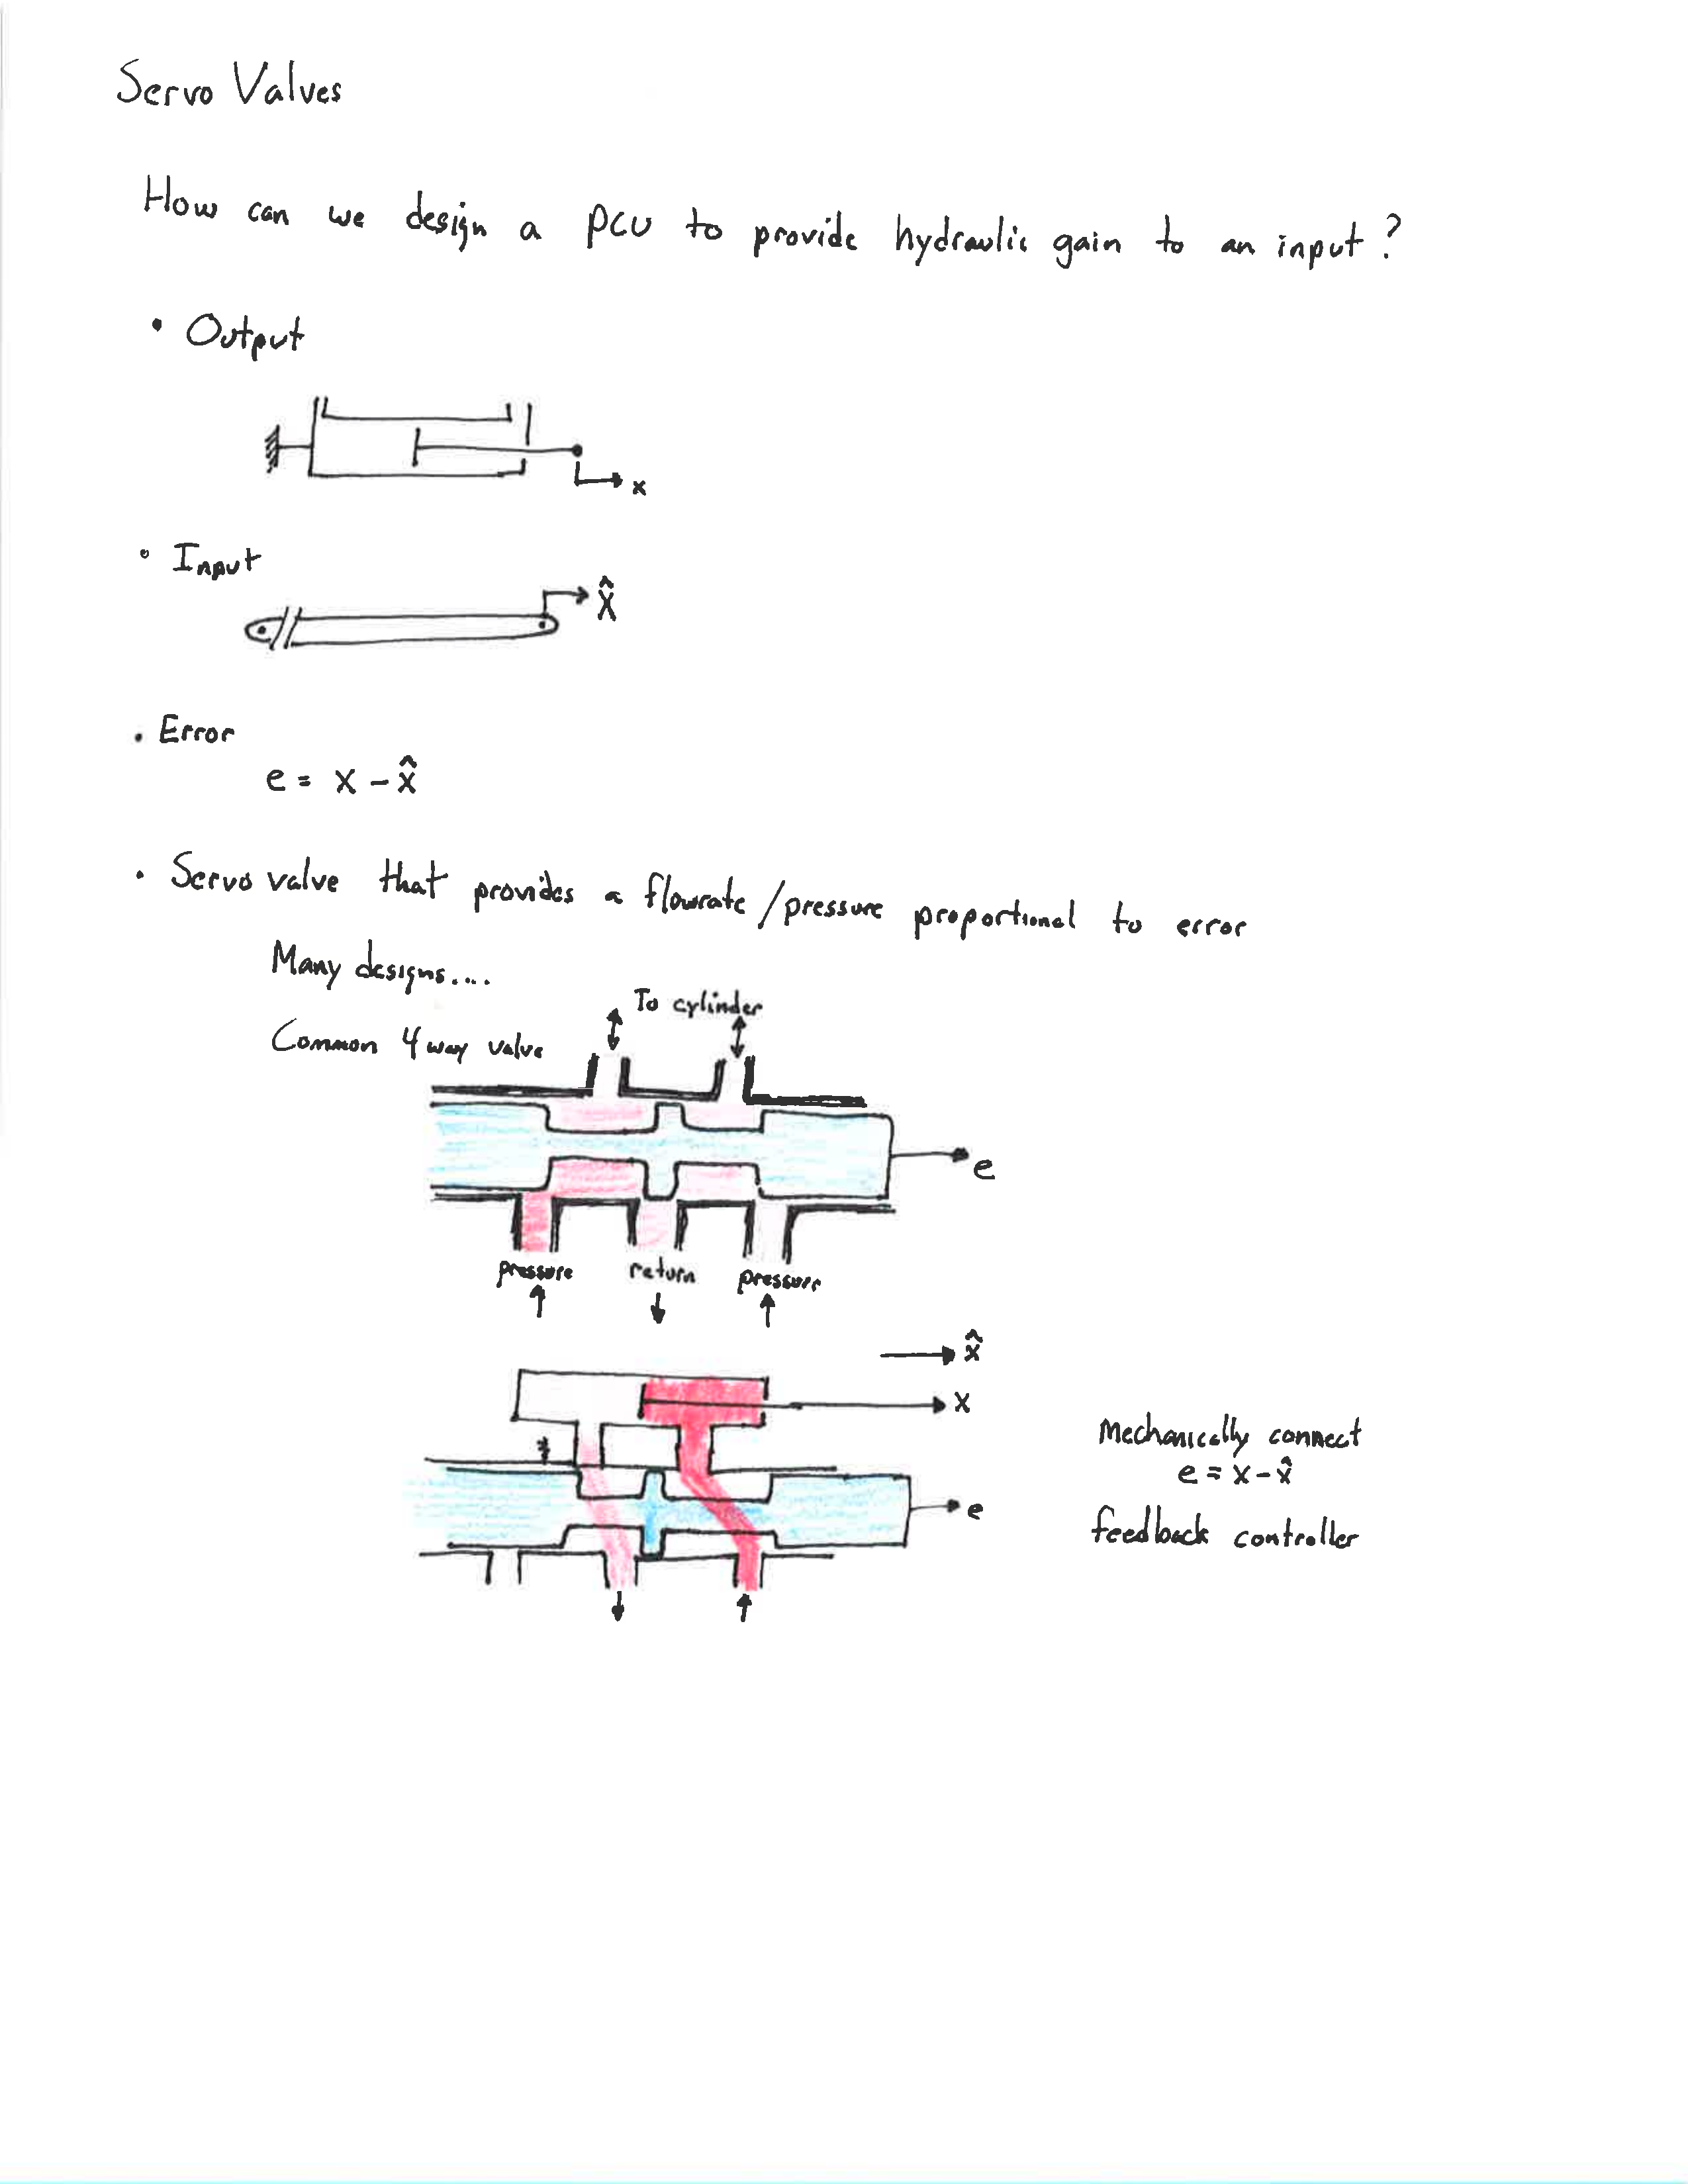 Servo Valves
How can we design a PCU to provide hydraulic gain to an input?
• Output
x
• Input
x̂
• Error
e = x - x̂
• Servo valve that provides a flowrate/pressure proportional to error
Many designs....
To cylinder
Common 4 way valve
e
pressure return pressure
x̂
x
Mechanically connect
e = x - x̂
e
feedback controller